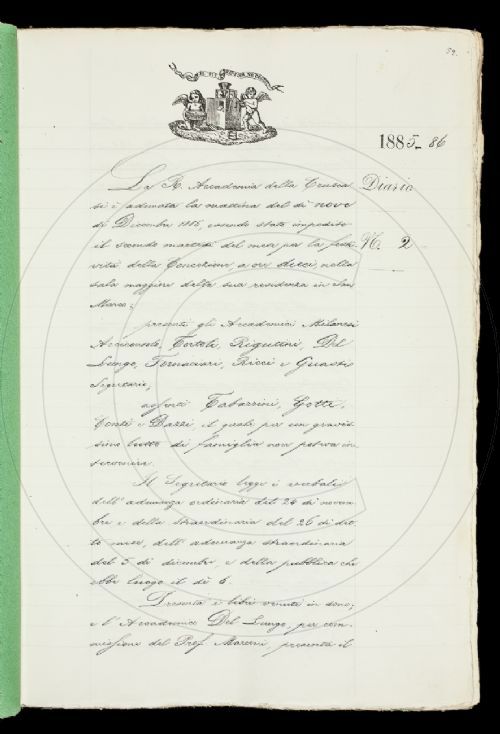 59.
1885-86
La R. Accademia della Crusca
Diario
si è adunata la mattina del dì nove
di Decembre 1885, essendo stato impedito
il secondo martedì del mese per la festi-
N. 2
vità della Concezione, a ore dieci, nella
sala maggiore della sua residenza in San
Marco;
presenti gli Accademici Milanesi
Arciconsolo, Tortoli, Rigutini, Del
Lungo, Fornaciari, Ricci e Guasti
Segretario;
assenti Tabarrini, Gotti,
Conti e Dazzi il quale per un gravis-
simo lutto di famiglia non poteva in-
tervenire.
Il Segretario legge i verbali
dell'adunanza ordinaria del 24 di novem-
bre e della straordinaria del 26 di det-
to mese, dell'adunanza straordinaria
del 5 di dicembre, e della pubblica che
ebbe luogo il dì 6.
Presenta i libri venuti in dono;
e l'Accademico Del Lungo, per com-
missione del Prof. presenta il